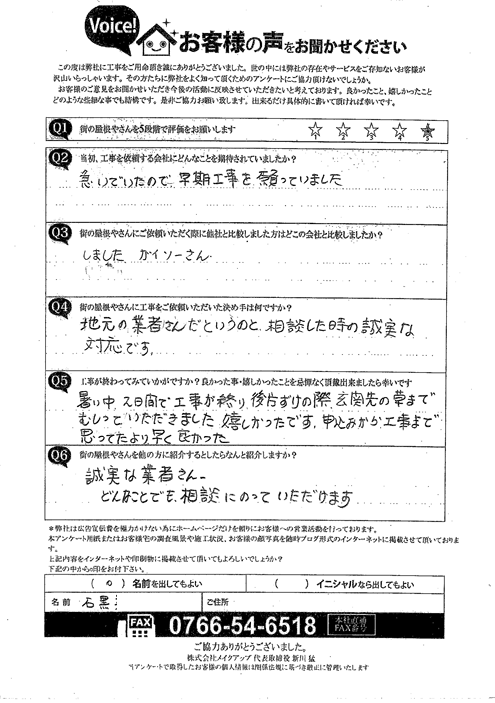 Voice!
お客様の声をお聞かせください
この度は弊社に工事をご用命頂き誠にありがとうございました。世の中には弊社の存在やサービスをご存知ないお客様が
沢山いらっしゃいます。その方たちに弊社をよく知って頂くためのアンケートにご協力頂けないでしょうか。
お客様のご意見をお聞かせいただき今後の活動に反映させていただきたいと考えております。良かったこと、嬉しかったこと
どのような些細な事でも結構です。是非ご協力お願い致します。出来るだけ具体的に書いて頂ければ幸いです。
Q1 街の屋根やさんを5段階で評価をお願いします
1 2 3 4 5
Q2 当初、工事を依頼する会社にどんなことを期待されていましたか?
急いでいたので、早期工事を願っていました
Q3 街の屋根やさんにご依頼いただく際に他社と比較しました方はどこの会社と比較しましたか?
しました ガイソーさん
Q4 街の屋根やさんに工事をご依頼いただいた決め手は何ですか?
地元の業者さんだというのと、相談した時の誠実な
対応です。
Q5 工事が終わってみていかがですか?良かった事・嬉しかったことを忌憚なく頂戴出来ましたら幸いです
暑い中 2日間で工事が終り、後片ずけの際、玄関先の草まで
むしっていただきました 嬉しかったです。申込みから工事まで
思ってたより早く良かった
Q6 街の屋根やさんを他の方に紹介するとしたらなんと紹介しますか?
誠実な業者さんー
どんなことでも、相談にのっていただけます
*弊社は広告宣伝費を極力かけない為にホームページだけを頼りにお客様への営業活動を行っております。
本アンケート用紙またはお客様宅の調査風景や施工状況、お客様の顔写真を随時ブログ形式のインターネットに掲載させて頂いておりま
す。
上記内容をインターネットや印刷物に掲載させて頂いてもよろしいでしょうか?
下記の中から○印をお付下さい。
(○)名前を出してもよい ( )イニシャルなら出してもよい
名前 石黒 ご住所
FAX 0766-54-6518 本社直通 FAX番号
ご協力ありがとうございました。
株式会社メイクアップ 代表取締役 新川 猛
*当アンケートで取得したお客様の個人情報は関係法規に基づき厳正に管理いたします